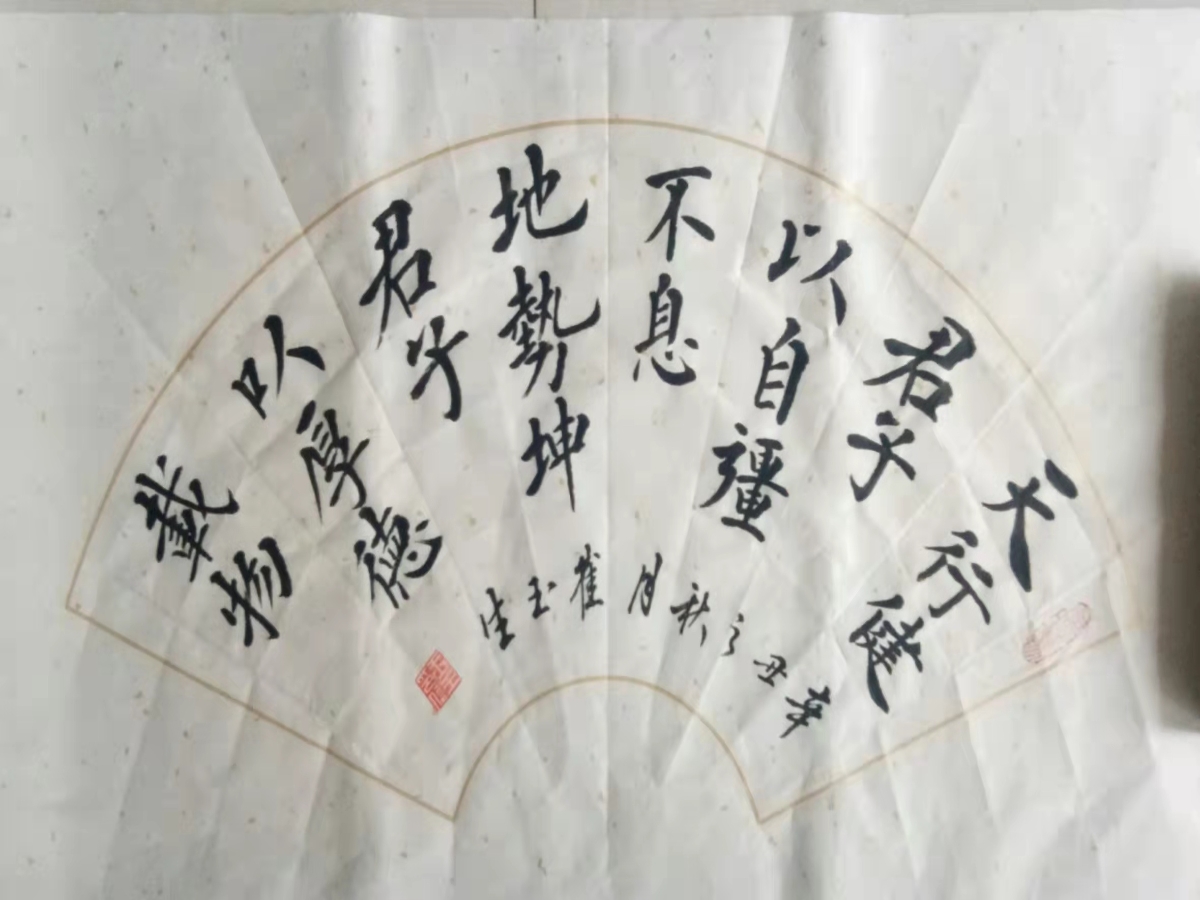 天行健
君子
以自彊
不息
地勢坤
君子
以厚德
載物
辛丑之秋月崔玉生